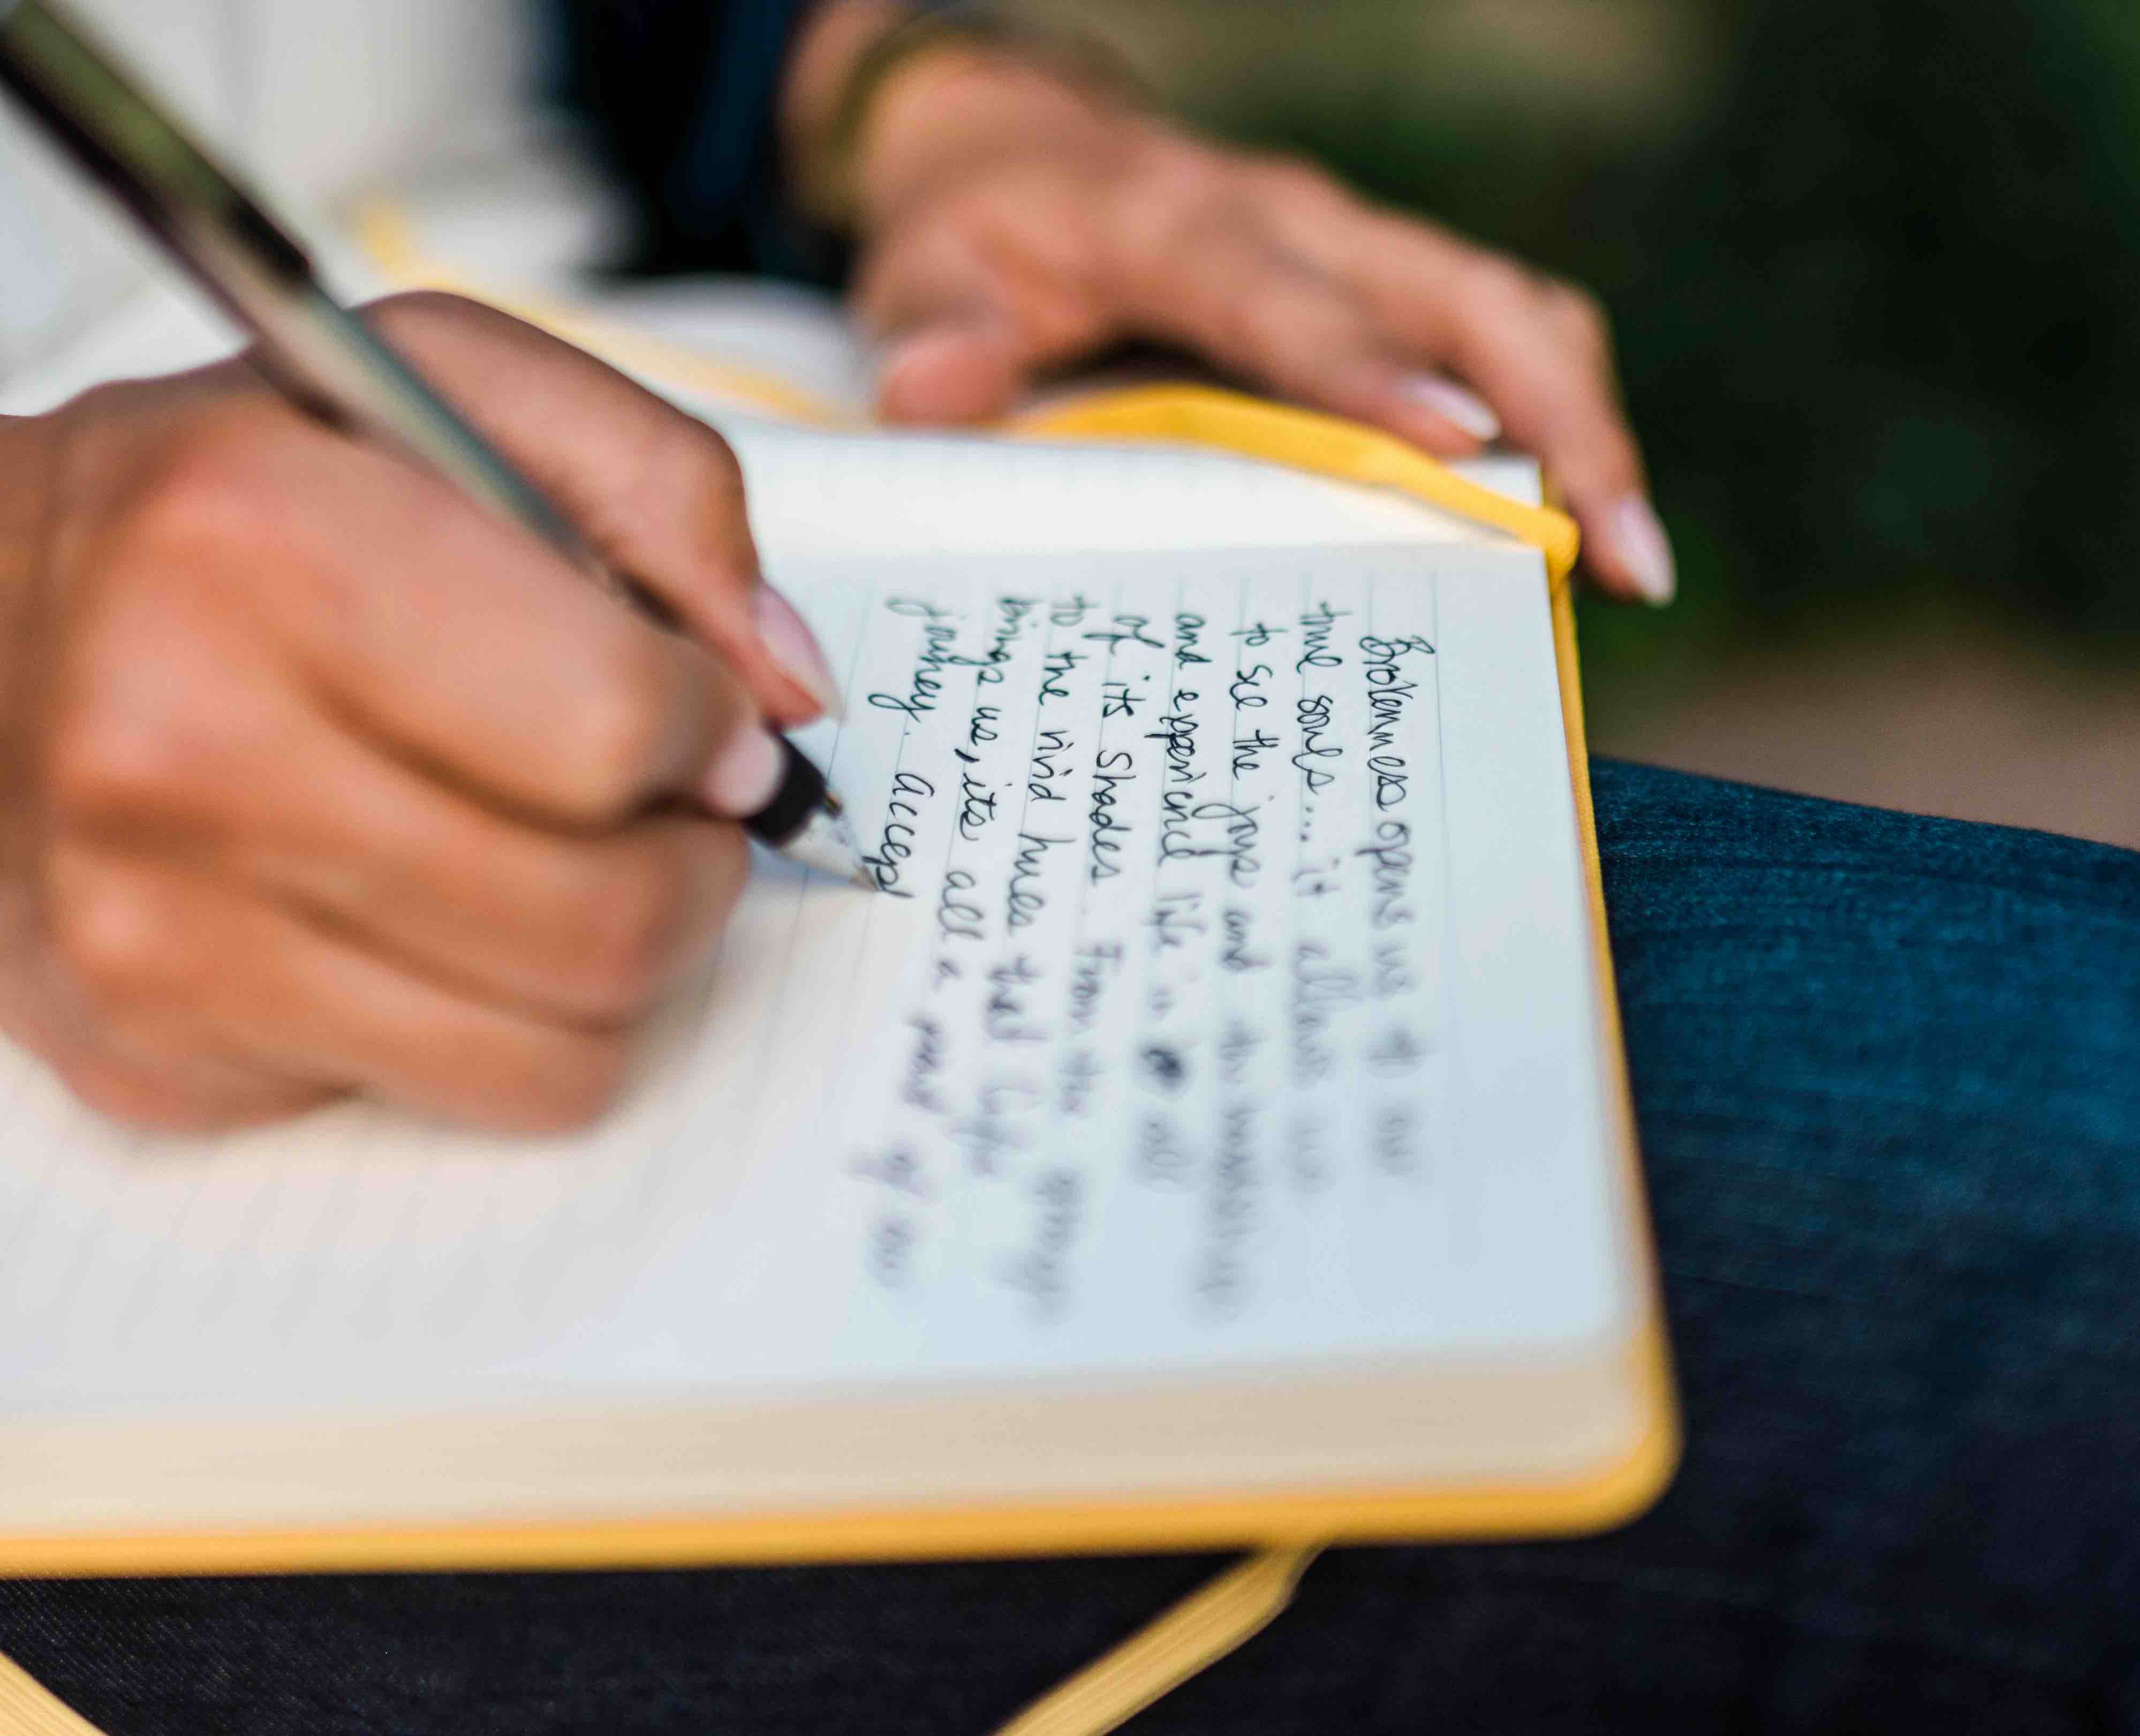 Brokenness opens us
true souls... it allows us
to see the joys and
and experience life in all
of its shades. From the
to the vivid hues that life
brings us, its all a part of our
jouney. accep